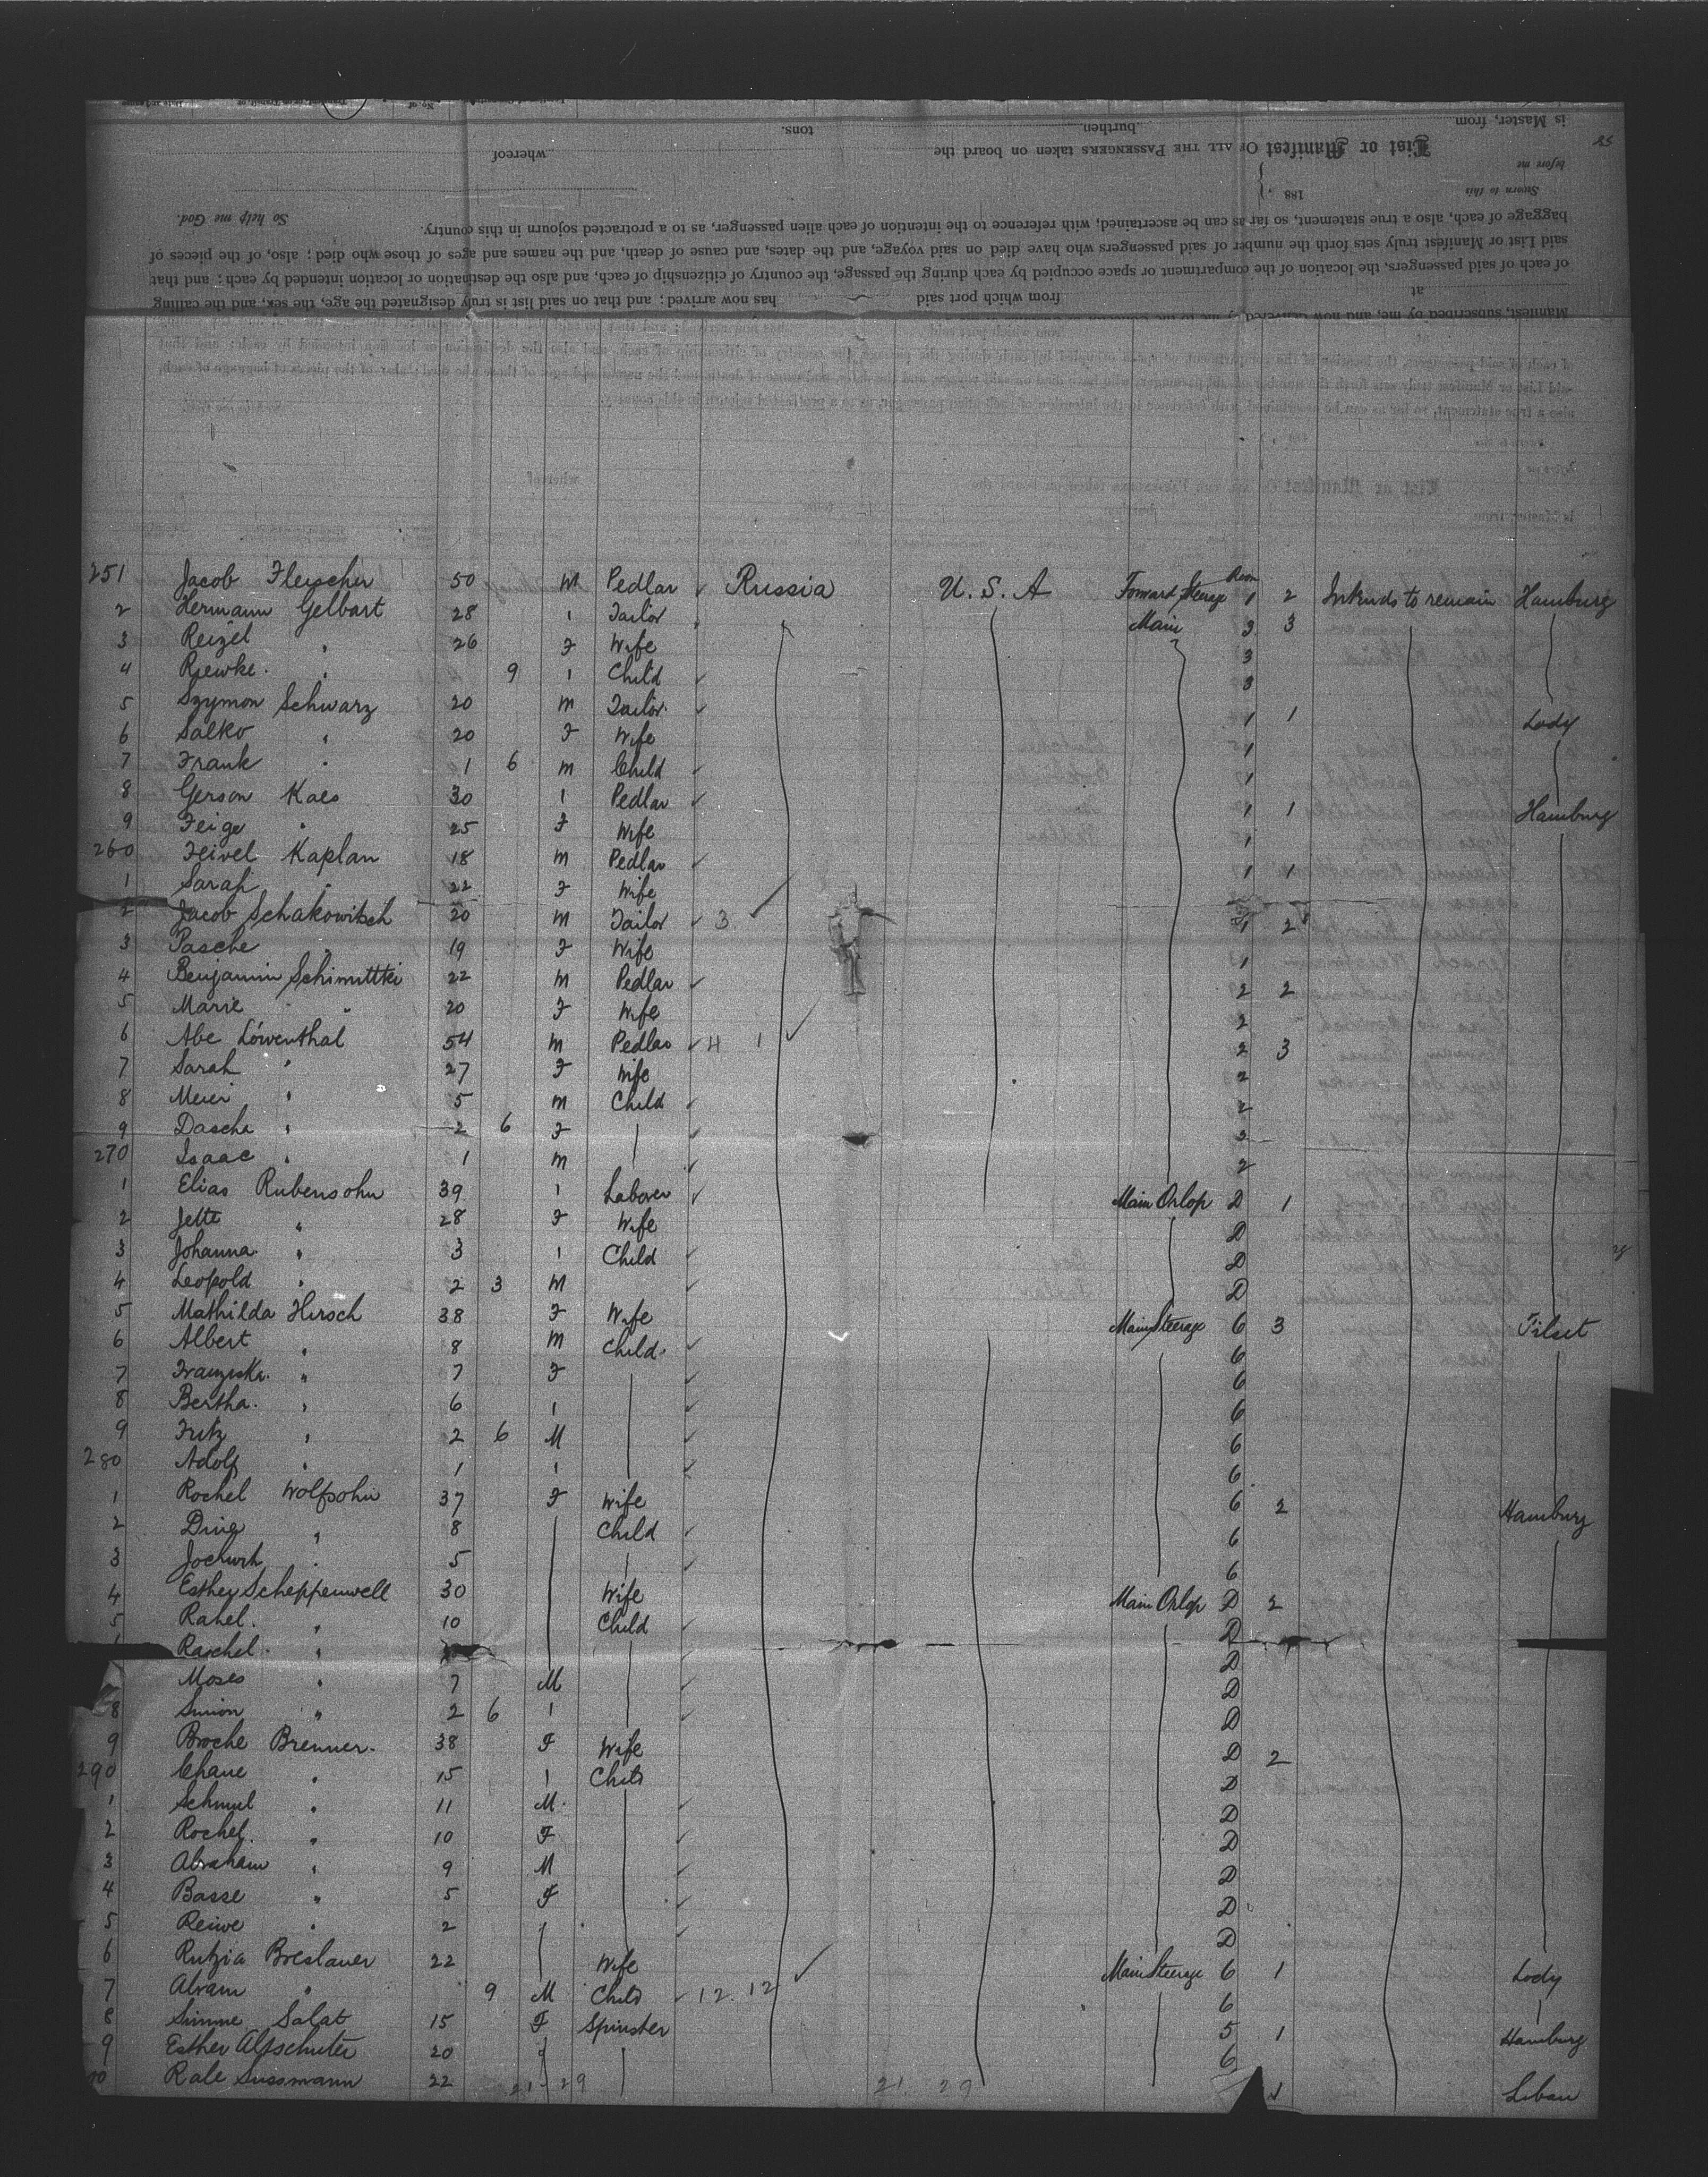 is Master, from burthen tons.
List or Manifest OF ALL THE PASSENGERS taken on board the whereof
before me
Sworn to this 188 .
So help me God.
baggage of each, also a true statement, so far as can be ascertained, with reference to the intention of each alien passenger, as to a protracted sojourn in this country.
said List or Manifest truly sets forth the number of said passengers who have died on said voyage, and the dates, and cause of death, and the names and ages of those who died; also, of the pieces of
of each of said passengers, the location of the compartment or space occupied by each during the passage, the country of citizenship of each, and also the destination or location intended by each; and that
at from which port said has now arrived; and that on said list is truly designated the age, the sex, and the calling
Manifest, subscribed by me, and now delivered by me to the
251 Jacob Fleischer 50 M Pedlar Russia U. S. A Forward Steerage 1 2 Intends to remain Hamburg
2 Hermann Gelbart 28 " Tailor Main 3 3
3 Reizel " 26 F Wife 3
4 Riewke " 9 " Child 3
5 Szymon Schwarz 20 M Tailor 1 1 Lody
6 Salko " 20 F Wife 1
7 Frank " 1 6 M Child 1
8 Gerson Kaes 30 " Pedlar 1 1 Hamburg
9 Feige " 25 F Wife 1
260 Feivel Kaplan 18 M Pedlar 1 1
1 Sarah " 22 F Wife
2 Jacob Schakowitsch 20 M Tailor 3 1 2
3 Pasche " 19 F Wife 1
4 Benjamin Schimuttki 22 M Pedlar 2 2
5 Marie " 20 F Wife 2
6 Abe Löwenthal 54 M Pedlar 4 1 2 3
7 Sarah " 27 F Wife 2
8 Meier " 5 M Child 2
9 Dascha " 2 6 F 2
270 Isaac " 1 M 2
1 Elias Rubensohn 39 " Laborer Main Orlop D 1
2 Jette " 28 F Wife D
3 Johanna " 3 " Child D
4 Leopold " 2 3 M D
5 Mathilda Hirsch 38 F Wife Main Steerage 6 3 Tilsit
6 Albert " 8 M Child 6
7 Franziska " 7 F 6
8 Bertha " 6 " 6
9 Fritz " 2 6 M 6
280 Adolf " 1 " 6
1 Rochel Wolfsohn 37 F Wife 6 2 Hamburg
2 Dine " 8 Child 6
3 " 5 6
4 Esther Scheppenwell 30 Wife Main Orlop D 2
5 Rahel " 10 Child D
Raschel " D
Moses " 7 M D
8 Simon " 2 6 " D
9 Broche Brenner 38 F Wife D 2
290 Chane " 15 " Child D
1 Schmul " 11 M D
2 Rochel " 10 F D
3 Abraham " 9 M D
4 Basse " 5 F D
5 Reiwe " 2 D
6 Rutzia Breslauer 22 Wife Main Steerage 6 1 Lody
7 Abram " 9 M Child 12 12 6
8 Simme Salat 15 F Spinster 5 1 Hamburg
9 Esther Altschuler 20 6
Rale Sussmann 22 1 Libau
21 29 21 29